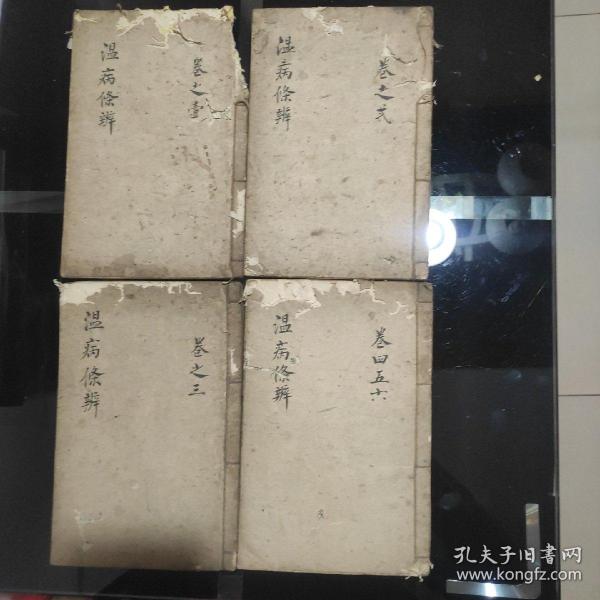 卷之壹
温病條辨
卷之弍
温病條辨
卷之三
温病條辨
卷四五六
温病條辨
孔夫子旧書网
www.kongfz.com